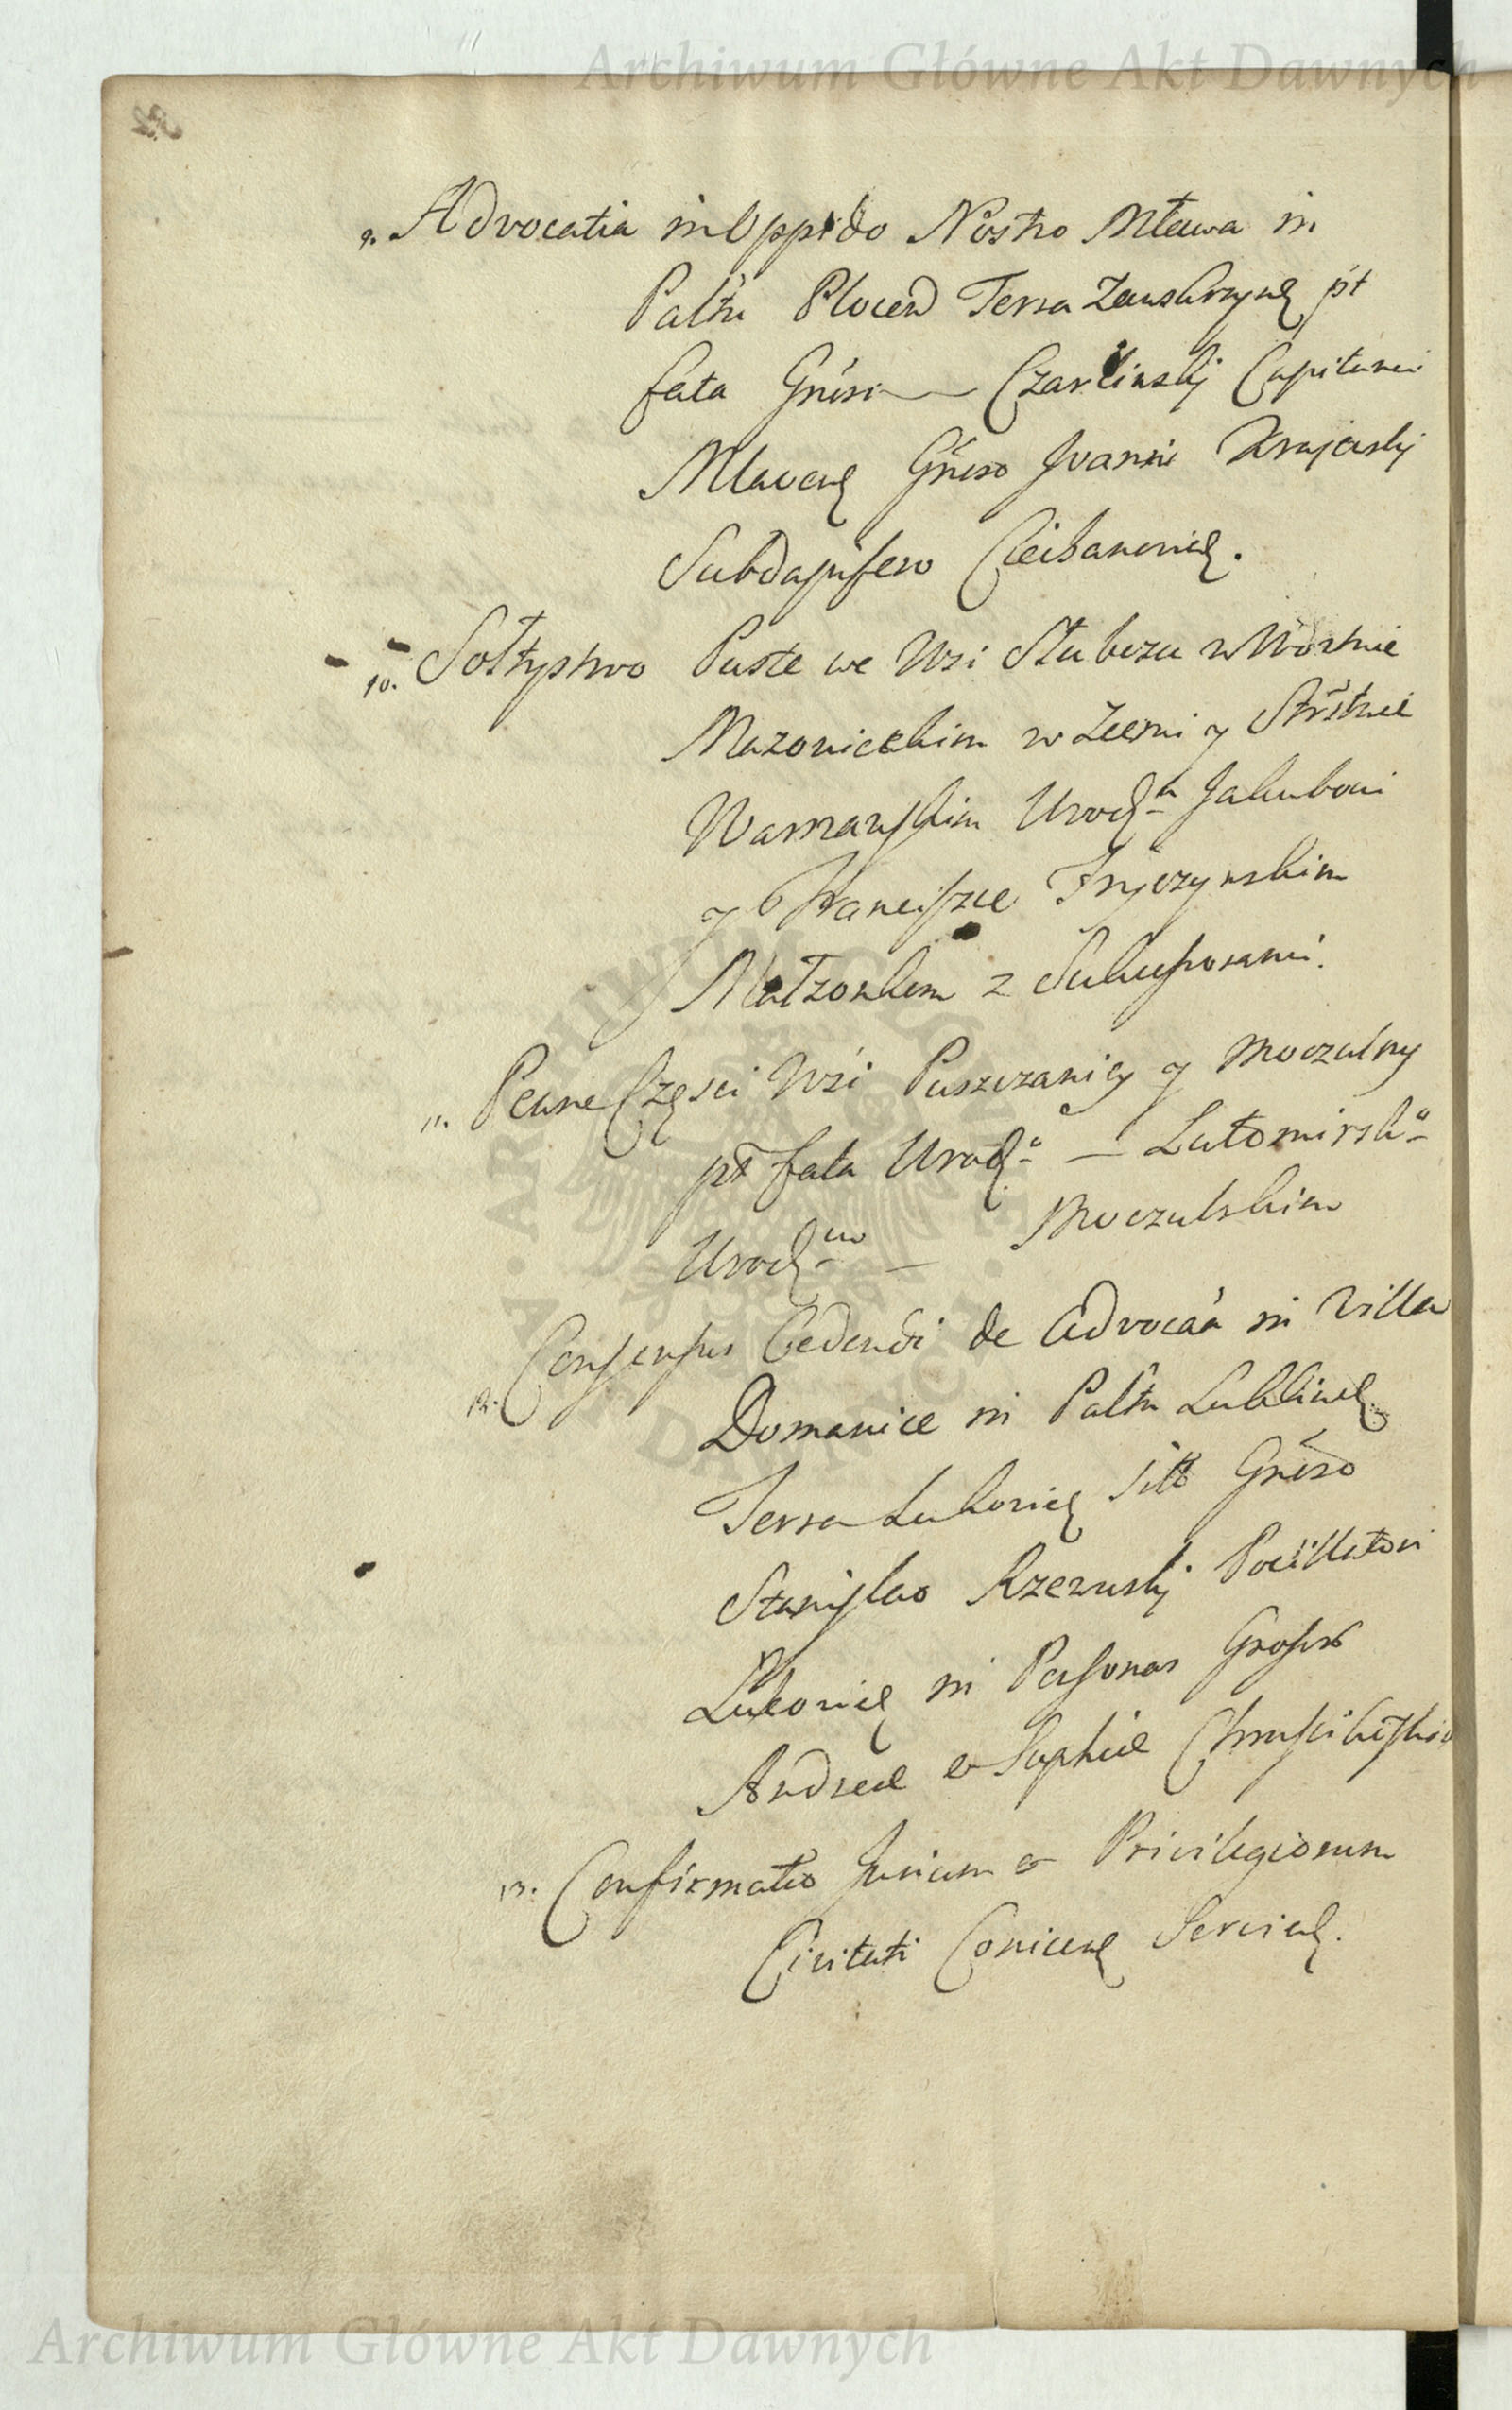 Archiwum Główne Akt Dawnych
9. Advocatia in Oppido Nostro Mława in
Palŧu Plocen Terra Zawskrzynen pt
fata Gnŕsi — Czarlinskj Capitanei
Mlaven Gnŕso Joanni Krajewskj
Subdapifero Ciechanovien.
10. Sołtystwo Puste we Wsi Słubczu w Wdztwie
Mazowieckim w Ziemi y Strstwie
Warszawskim Urodzm Jakubowi
y Franciszce Tryczynskim
Małzonkom z Sukcessorami.
11. Pewne Części Wsi Puszczanicy y Moczulny
pt fata Urodzo — Lutomirsko
Urodzmu — Moczulskim
12. Consensus Cedendi de Advocaa in Villa
Domanice in Paltu Lublinen
Terra Lukovien sito Gnŕso
Stanislao Rzezuskj Pocillatori
Lukovien in Personas Grosor
Andreae et Sophiae
13. Confirmatio Jurium et Privilegiorum
Civitati Conicen Servien.
Archiwum Główne Akt Dawnych